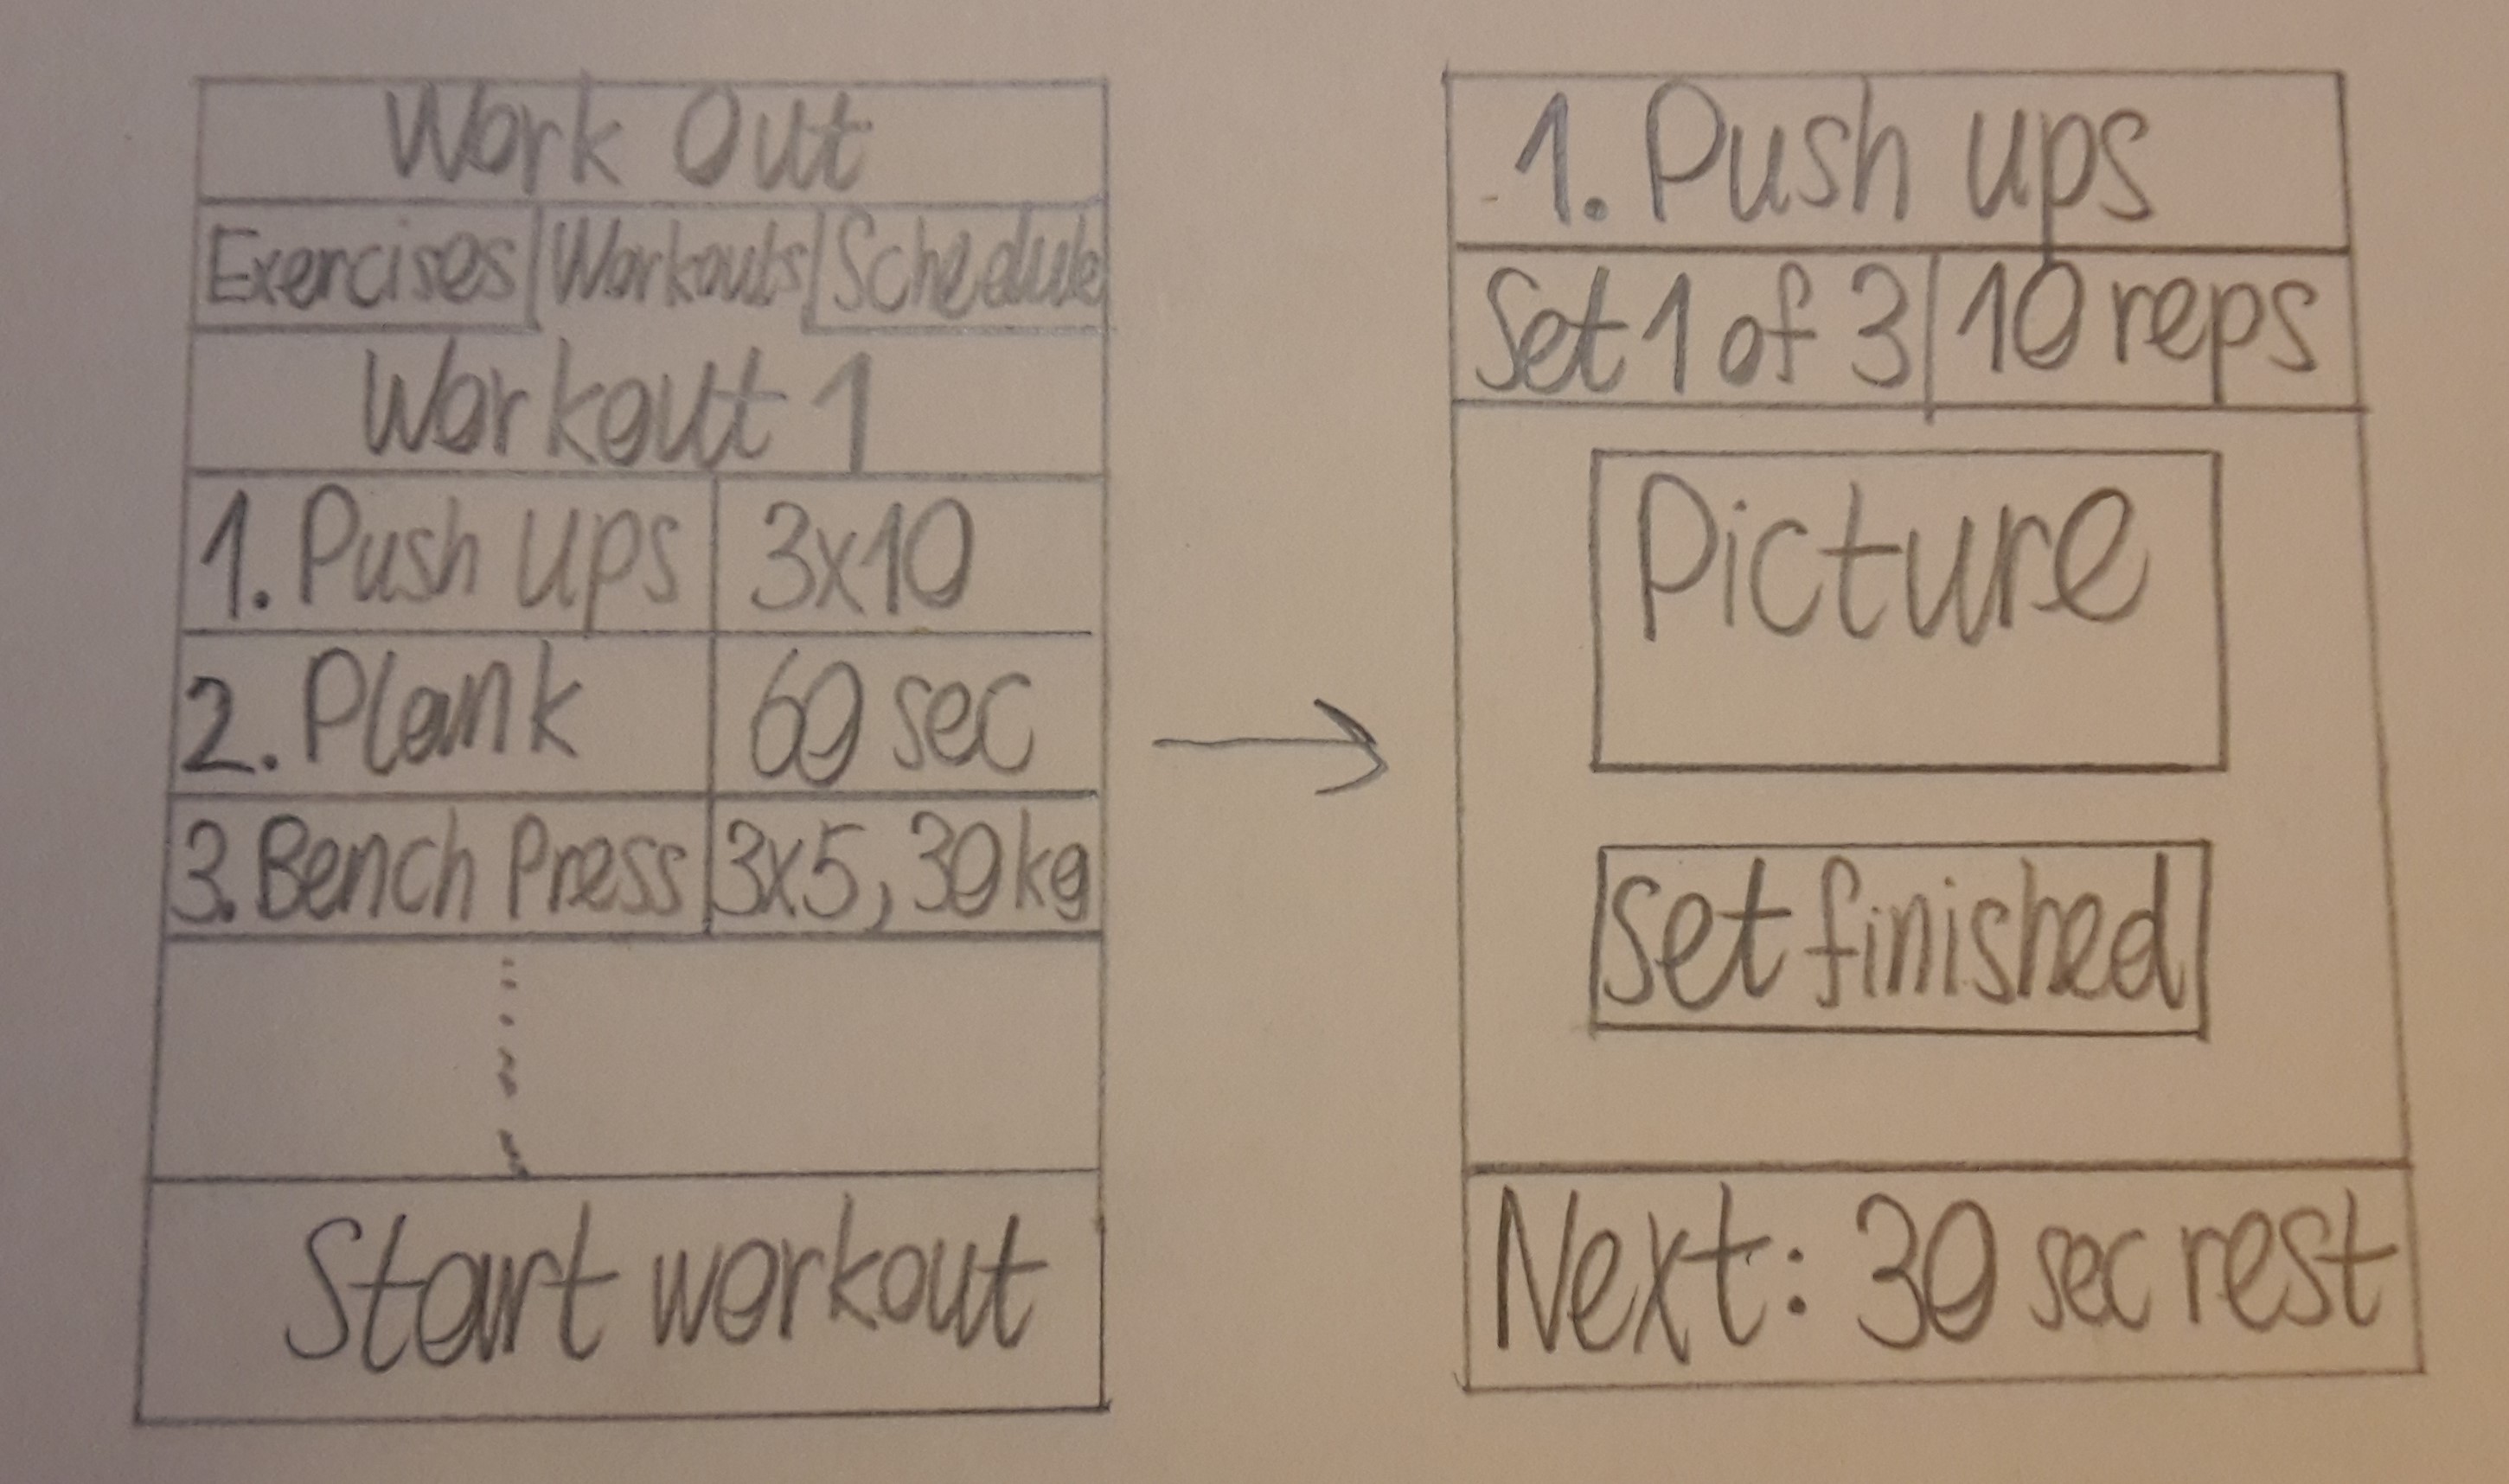 Work Out
Exercises Workouts Schedule
Workout 1
1. Push ups 3x10
2. Plank 60 sec
3. Bench Press 3x5, 30kg
Start workout
1. Push ups
Set 1 of 3 10 reps
Picture
Set finished
Next: 30 sec rest